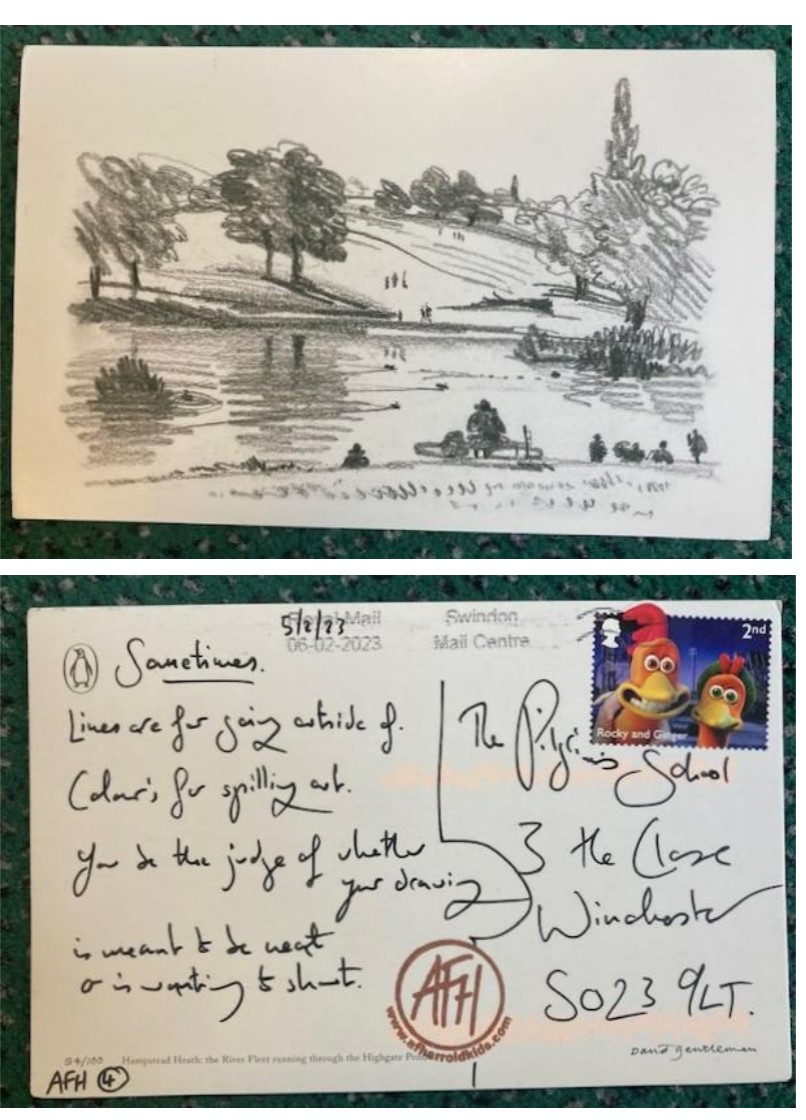 Royal Mail
5/2/23
06-02-2023
Swindon
Mail Centre
2nd
Rocky and Ginger
Sometimes.
Lines are for going outside of.
Colour's for spilling out.
You be the judge of whether
your drawing
is meant to be neat
or is wanting to shout.
The Pilgrims School
3 the Close
Winchester
SO23 9LT.
AFH
www.afharroldkids.com
94/100 Hampstead Heath: the River Fleet running through the Highgate
David Gentleman
AFH 4